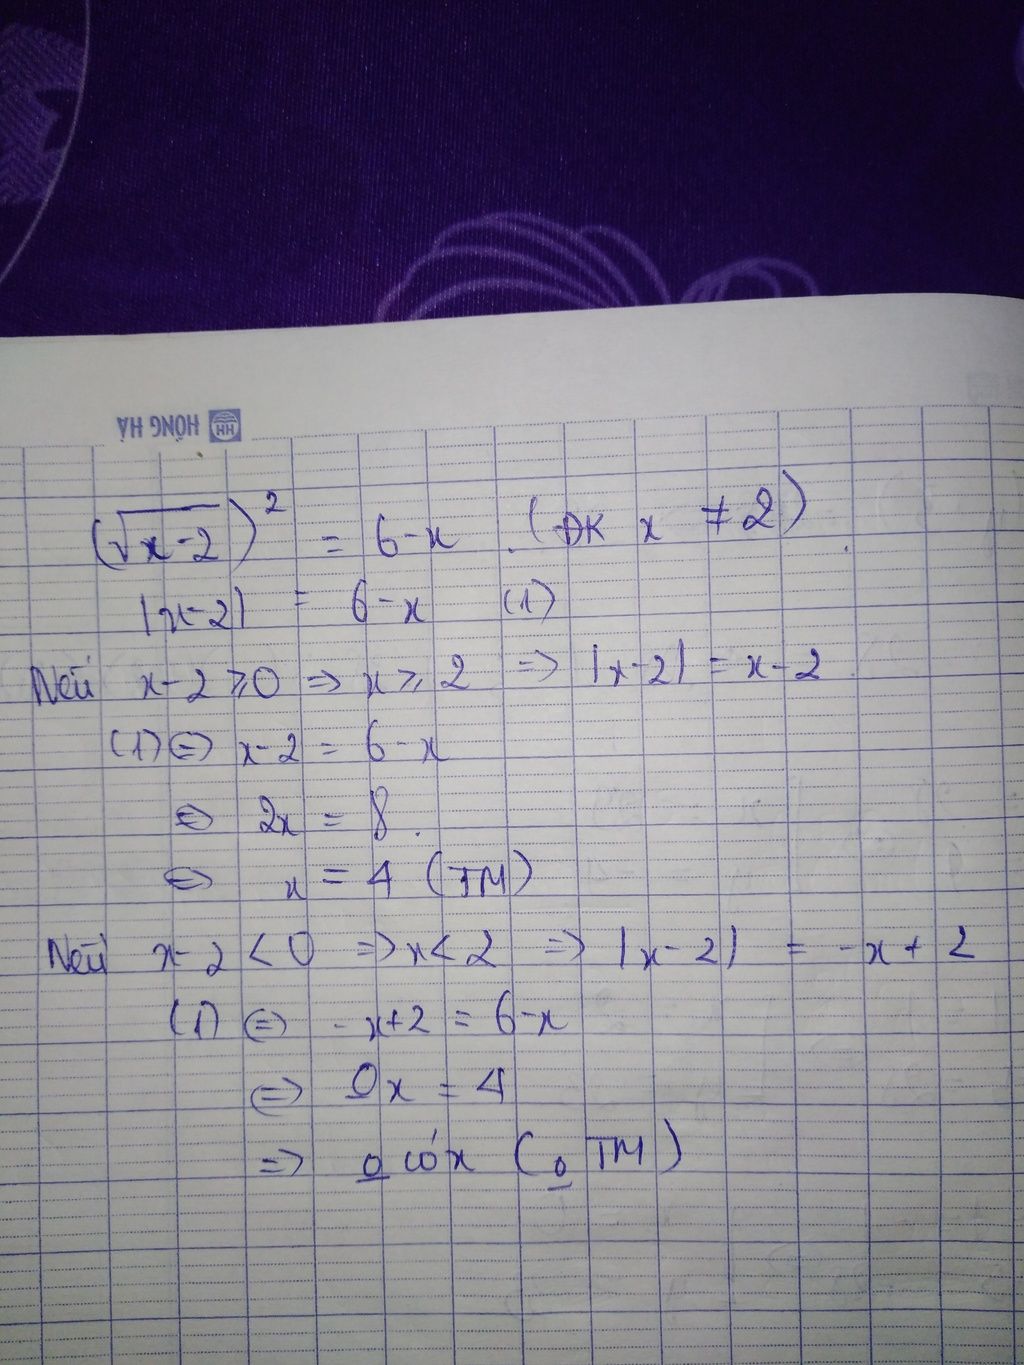 HỒNG HÀ
(√x-2)² = 6-x . (ĐK x ≠ 2)
|x-2| = 6-x (1)
Nếu x-2 ≥ 0 => x ≥ 2 => |x-2| = x-2
(1) <=> x-2 = 6-x
<=> 2x = 8.
<=> x = 4 (TM)
Nếu x-2 < 0 => x < 2 => |x-2| = -x+2
(1) <=> -x+2 = 6-x
<=> 0x = 4
=> o có x (o TM)